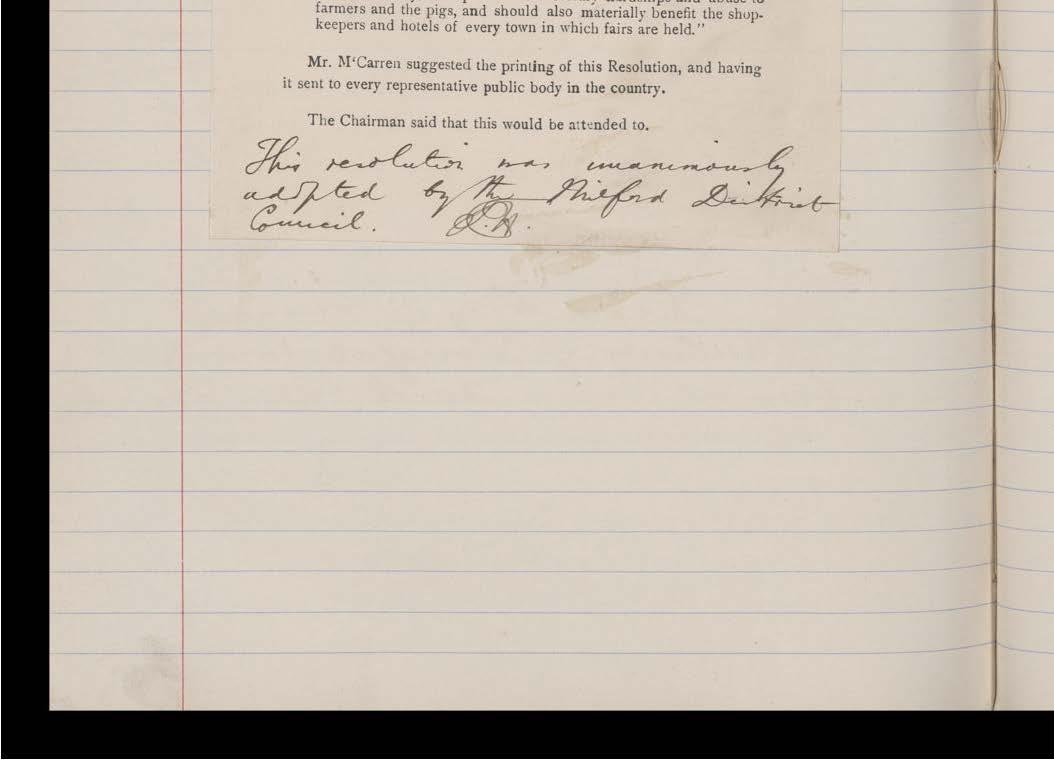 farmers and the pigs, and should also materially benefit the shop-
keepers and hotels of every town in which fairs are held.”
Mr. M‘Carren suggested the printing of this Resolution, and having
it sent to every representative public body in the country.
The Chairman said that this would be attended to.
This resolution was unanimously
adopted by the Milford District
Council.